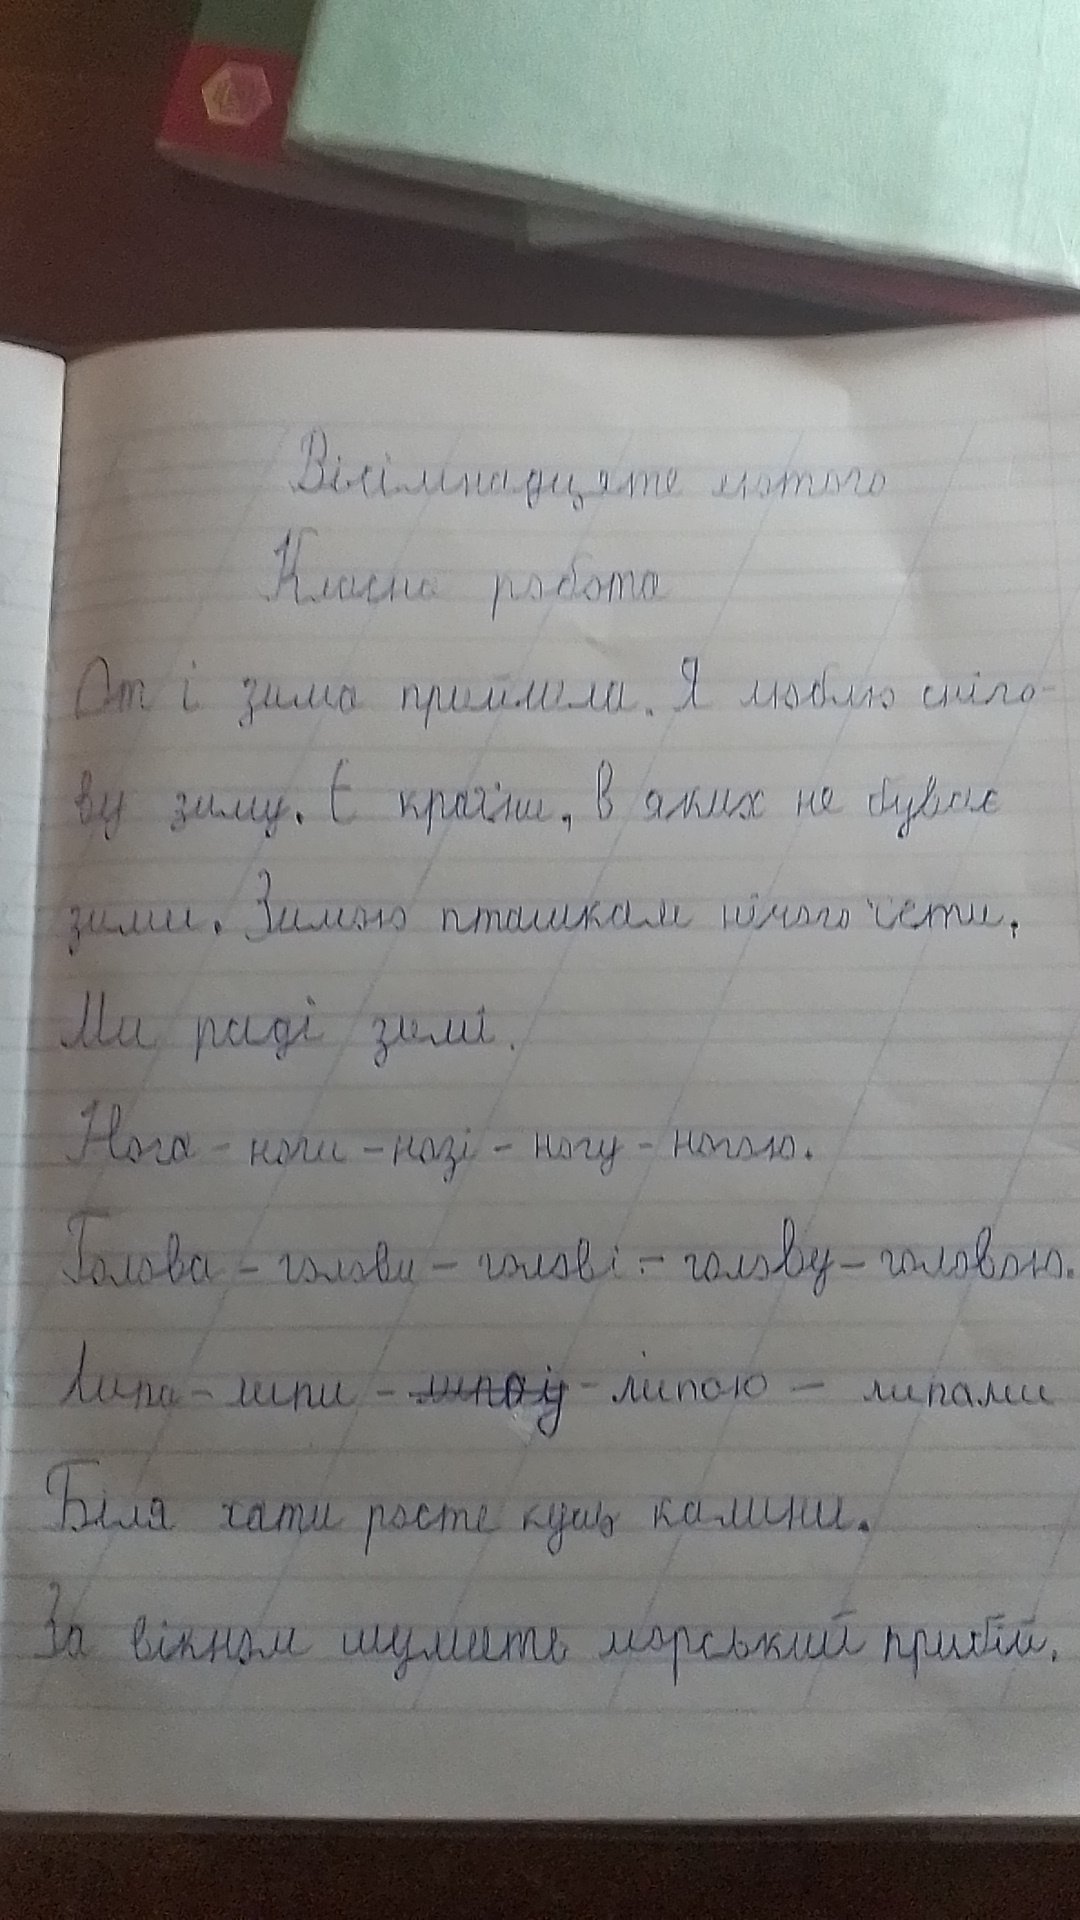 Вісімнадцяте лютого
Класна робота
От і зима прийшла. Я люблю сніго-
ву зиму. Є країни, в яких не буває
зими. Зимою пташкам нічого їсти.
Ми раді зимі.
Нога - ноги - нозі - ногу - ногою.
Голова - голови - голові - голову - головою.
Липа - липи - - ліпою - липами
Біля хати росте кущ калини.
За вікном шумить морський прибій.